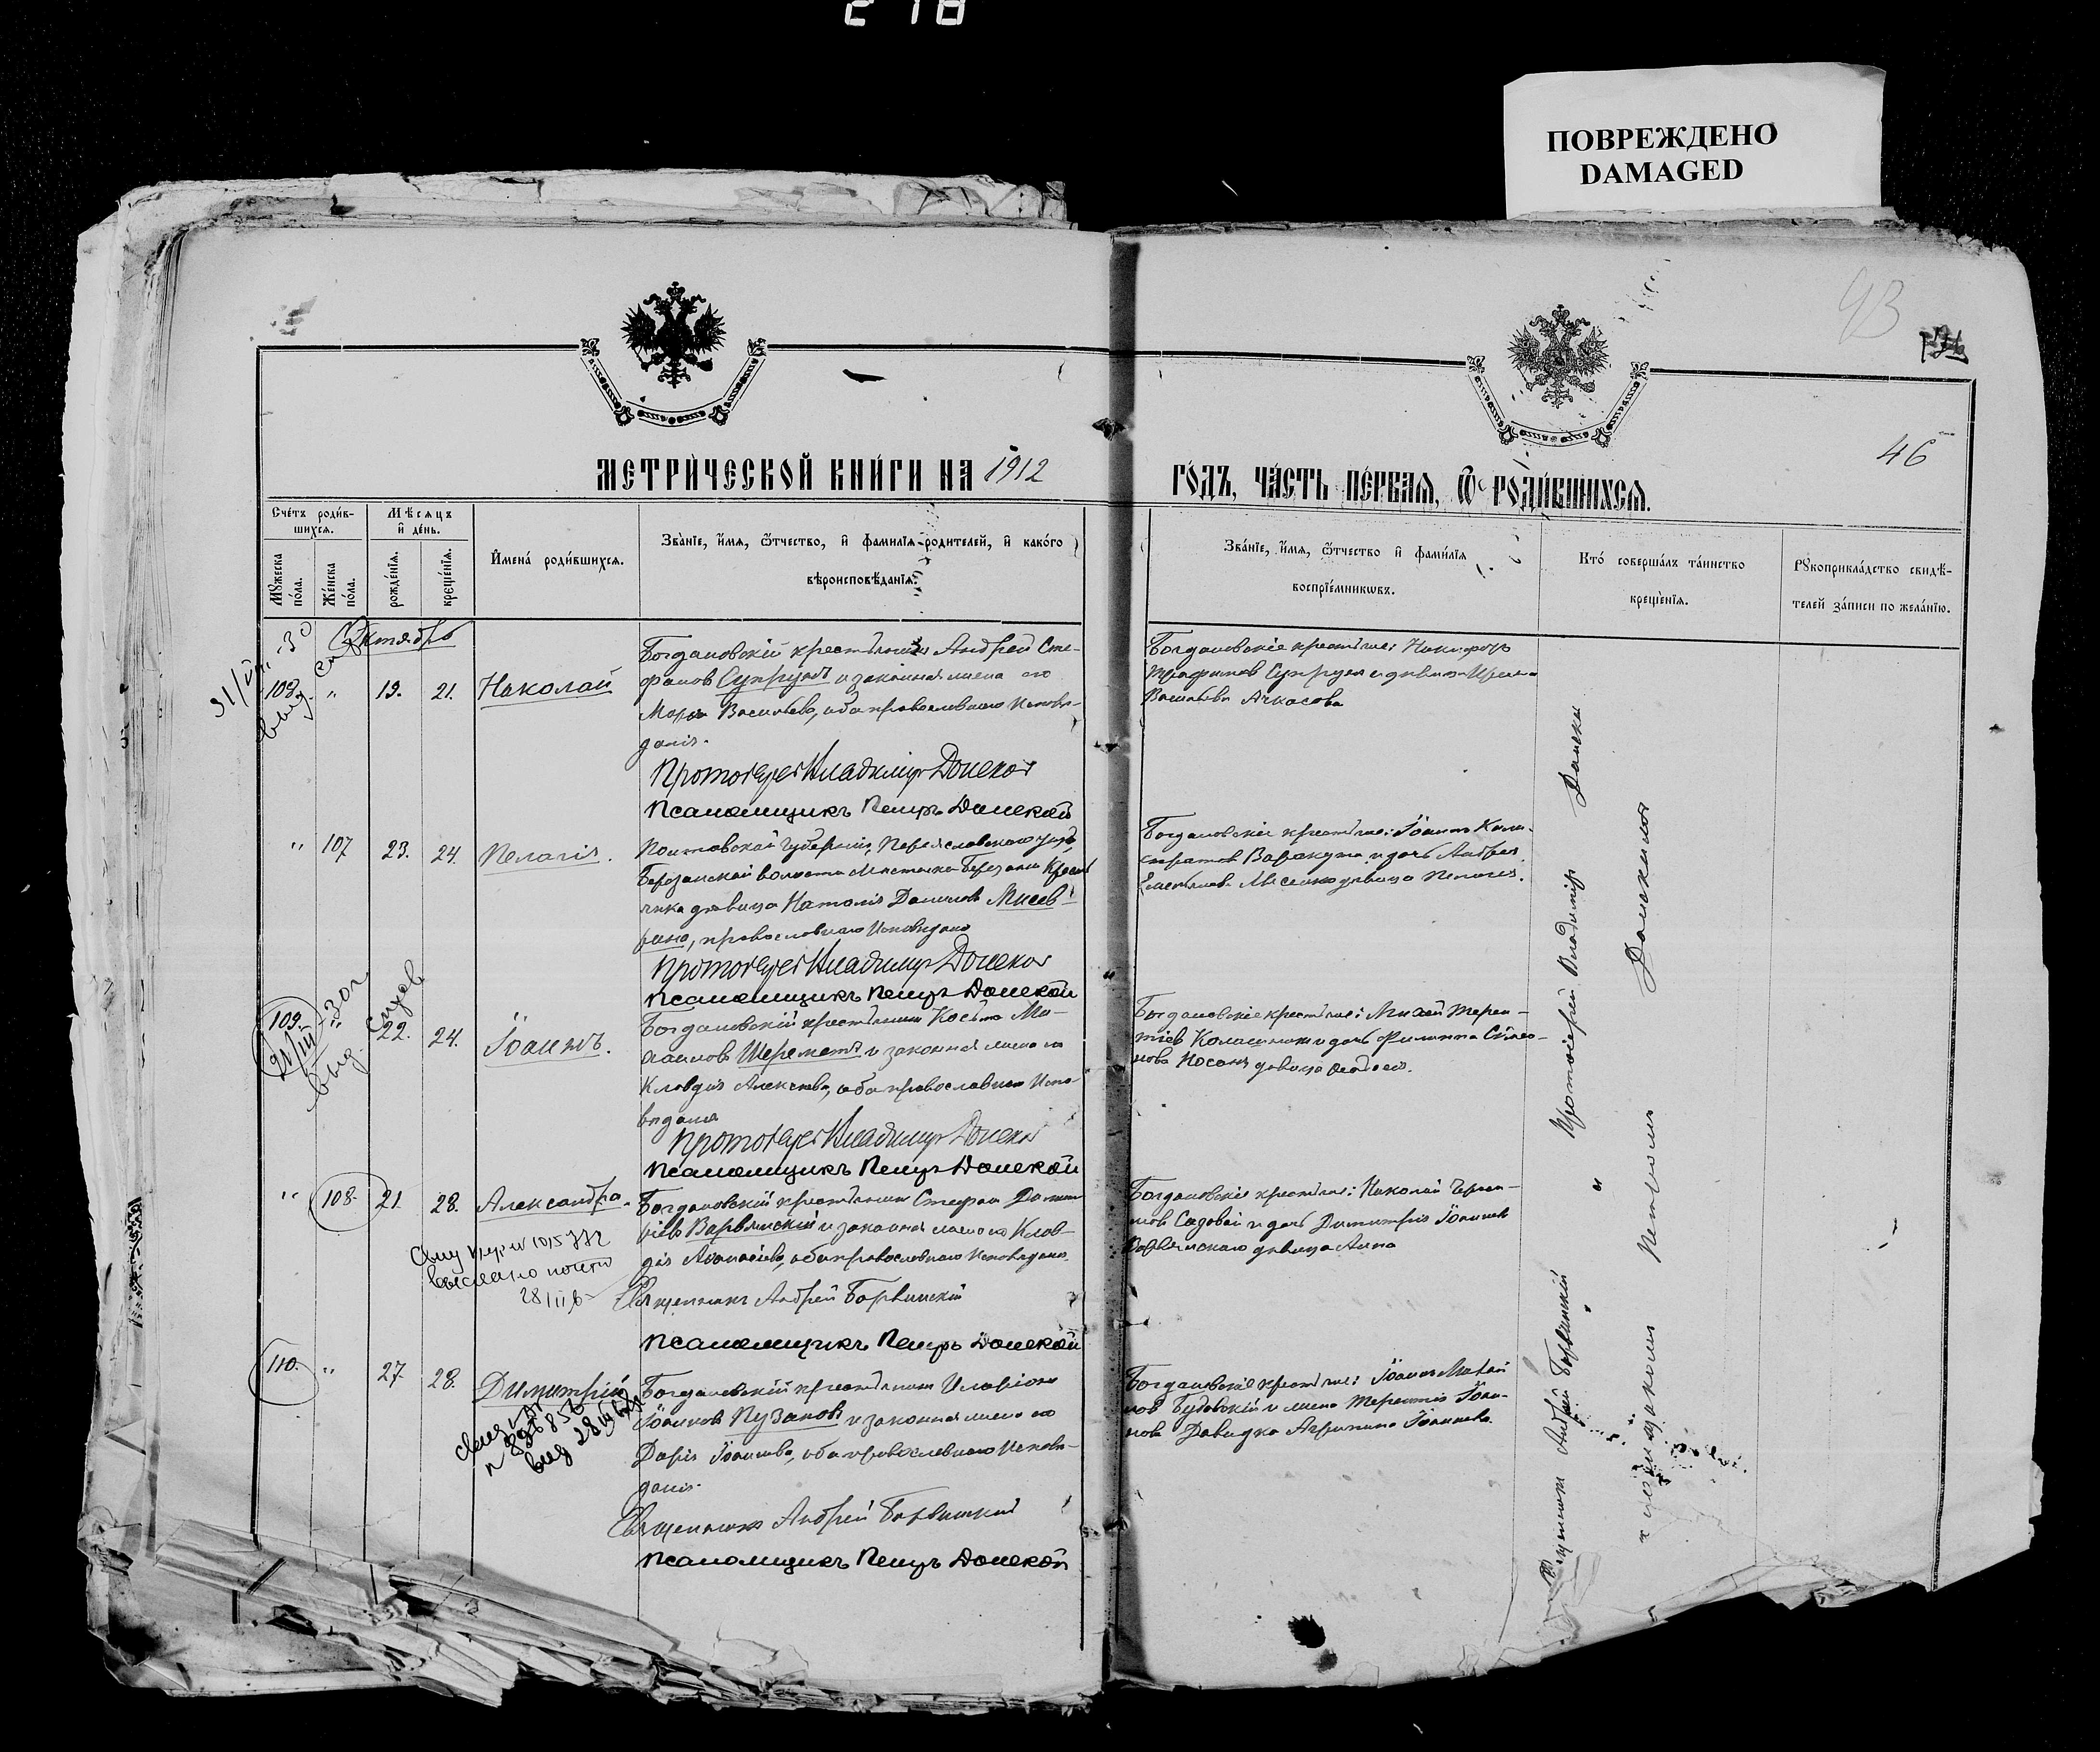 218
ПОВРЕЖДЕНО
DAMAGED
43
46
МЕТРИ́ЧЕСКОЙ КНИ́ГИ НА 1912
ГО́ДЪ, ЧА́СТЬ ПЕ́РВАЯ, Ѿ РОДИ́ВШИХСЯ.
Сче́тъ роди́в-
шихся.
Мѣсяцъ
и де́нь.
Мꙋжеска по́ла.
Же́нска по́ла.
рожде́нїя.
креще́нїя.
Имена́ роди́вшихся.
Зва́нїе, и́мя, ѻ҆́тчество, и фами́лїя родителей, и како́го
вѣроисповѣ́данїя.
Зва́нїе, и́мя, ѻ҆́тчество и фами́лїя
воспрїе́мникѡвъ.
Кто́ соверша́лъ та́инство
креще́нїя.
Рꙋкоприкла́дство свидѣ́-
телей за́писи по жела́нїю.
Октябрь
108. " 19. 21. Николай
Богдановскій крестьянинъ Андрей Сте-
фановъ Супрунъ и законная жена его
Марія Васильева, оба православнаго исповѣ-
данія.
Протоіерей Владиміръ Донской
Псаломщикъ Петръ Донской
Богдановскіе крестьяне: Никифоръ
Трофимовъ Супрунъ и дѣвица Ирина
Васильева Ачкасова
" 107 23. 24. Пелагія.
Полтавской губерніи, Переяславскаго уѣзда,
Березанской волости мѣстечка Березани крест
янка дѣвица Наталія Данилова Мисев
рина, православнаго исповѣданія
Протоіерей Владиміръ Донской
Псаломщикъ Петръ Донской
Богдановскіе крестьяне: Іоаннъ Кали-
стратовъ Варакута и дочь Андрея
Емельянова Мисенко дѣвица Пелагія.
109. " 22. 24. Іоаннъ.
21/III 30 г
выд.
Богдановскій крестьянинъ Косьма Ми-
хаиловъ Шереметъ и законная жена его
Клавдія Алексѣева, оба православнаго испо-
вѣданія
Протоіерей Владиміръ Донской
Псаломщикъ Петръ Донской
Богдановскіе крестьяне: Михей Терен-
тіевъ Коляшникъ и дочь Филиппа Симео-
нова Носаня дѣвица Ѳеодосія.
" 108. 21. 28. Александра.
Богдановскій крестьянинъ Стефанъ Димит
ріевъ Варвянскій и законная жена его Клав-
дія Аѳанасіева, оба православнаго исповѣданія.
Священникъ Андрей Борвинскій
Псаломщикъ Петръ Донской
Богдановскіе крестьяне: Николай
Садовой и дочь Димитрія Іоаннова
Варвянскаго дѣвица Анна
выслано почтой
110. " 27. 28. Димитрій
Богдановскій крестьянинъ Иларіонъ
Іоанновъ Пузановъ и законная жена его
Дарія Іоаннова, оба православнаго исповѣ-
данія.
Священникъ Андрей Борвинскій
Псаломщикъ Петръ Донской
Богдановскіе крестьяне: Іоаннъ Матѳіи
новъ Будовскій и жена Терентія Іоан-
нова Давидка Агрипина Іоаннова.
Протоіерей Владиміръ Донской
Священникъ Андрей Борвинскій
псаломщикомъ Петромъ Донскимъ